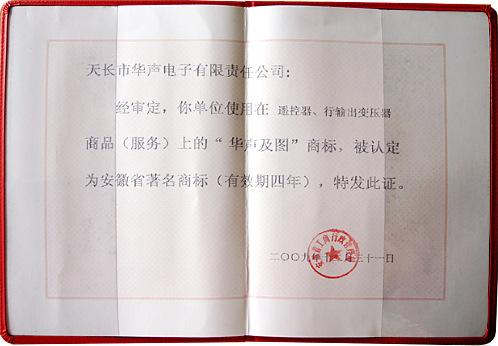 天长市华声电子有限责任公司：
经审定，你单位使用在 遥控器、行输出变压器
商品（服务）上的“华声及图”商标，被认定
为安徽省著名商标（有效期四年），特发此证。
安徽省工商行政管理局
二〇〇九年十二月三十一日